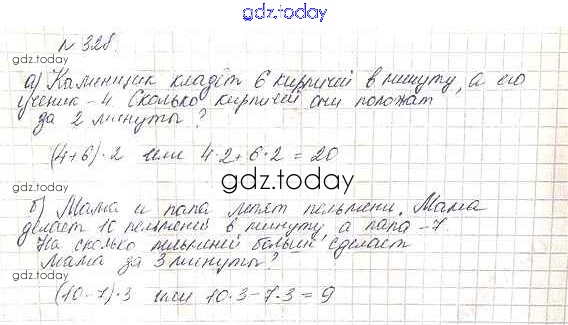 gdz.today
№ 328.
gdz.today
а) Каменщик кладёт 6 кирпичей в минуту, а его
ученик - 4. Сколько кирпичей они положат
за 2 минуты?
gdz.today
(4+6)·2 или 4·2+6·2=20
gdz.today
б) Мама и папа лепят пельмени. Мама
делает 10 пельменей в минуту, а папа - 7.
На сколько пельменей больше сделает
мама за 3 минуты?
(10-7)·3 или 10·3-7·3=9
gdz.today